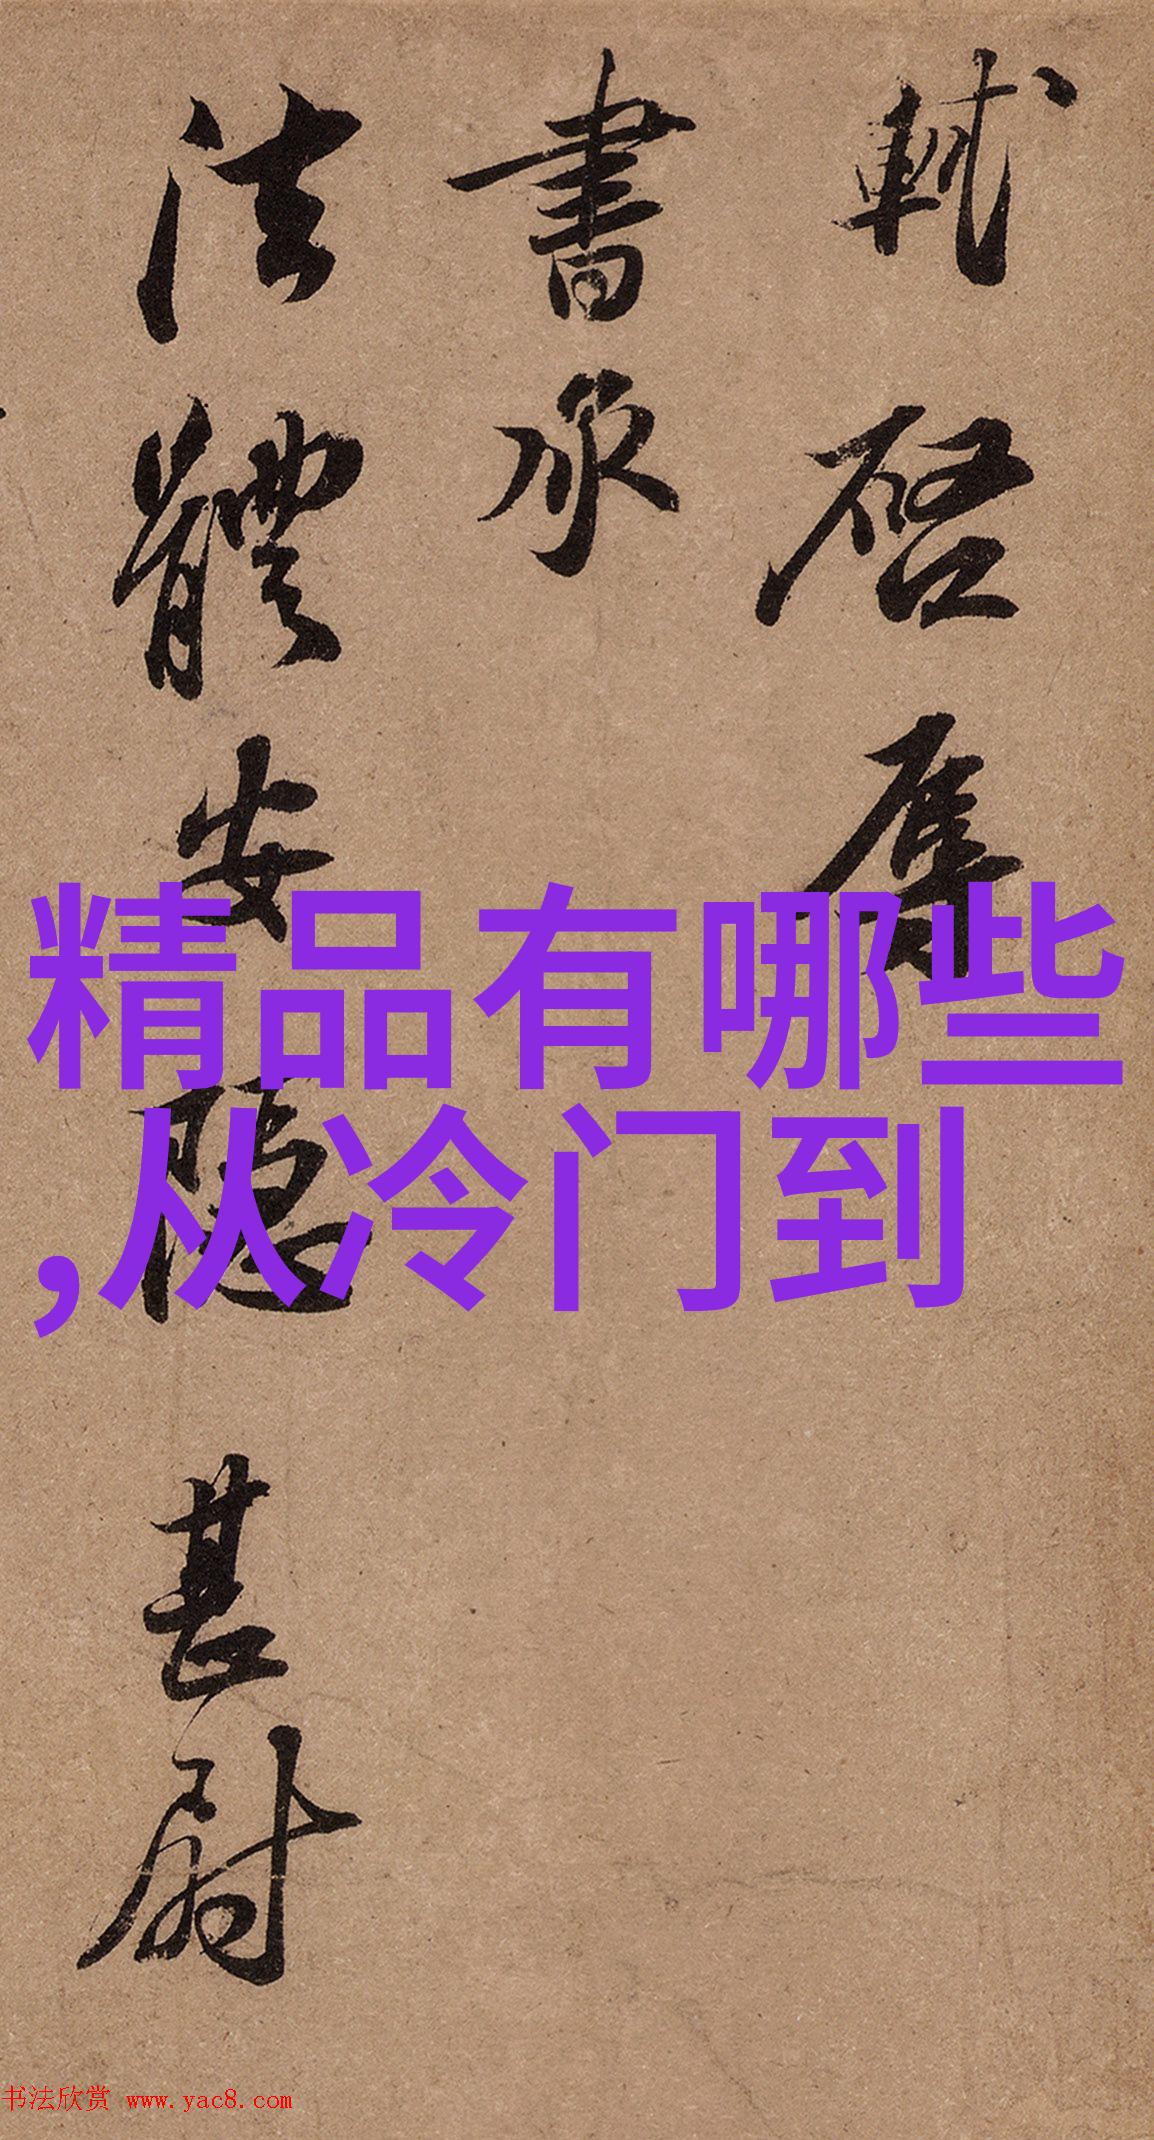 軾啓辱
書承
法體安隱甚尉
精品有哪些
,从冷门到
书法欣赏 www.yac8.com